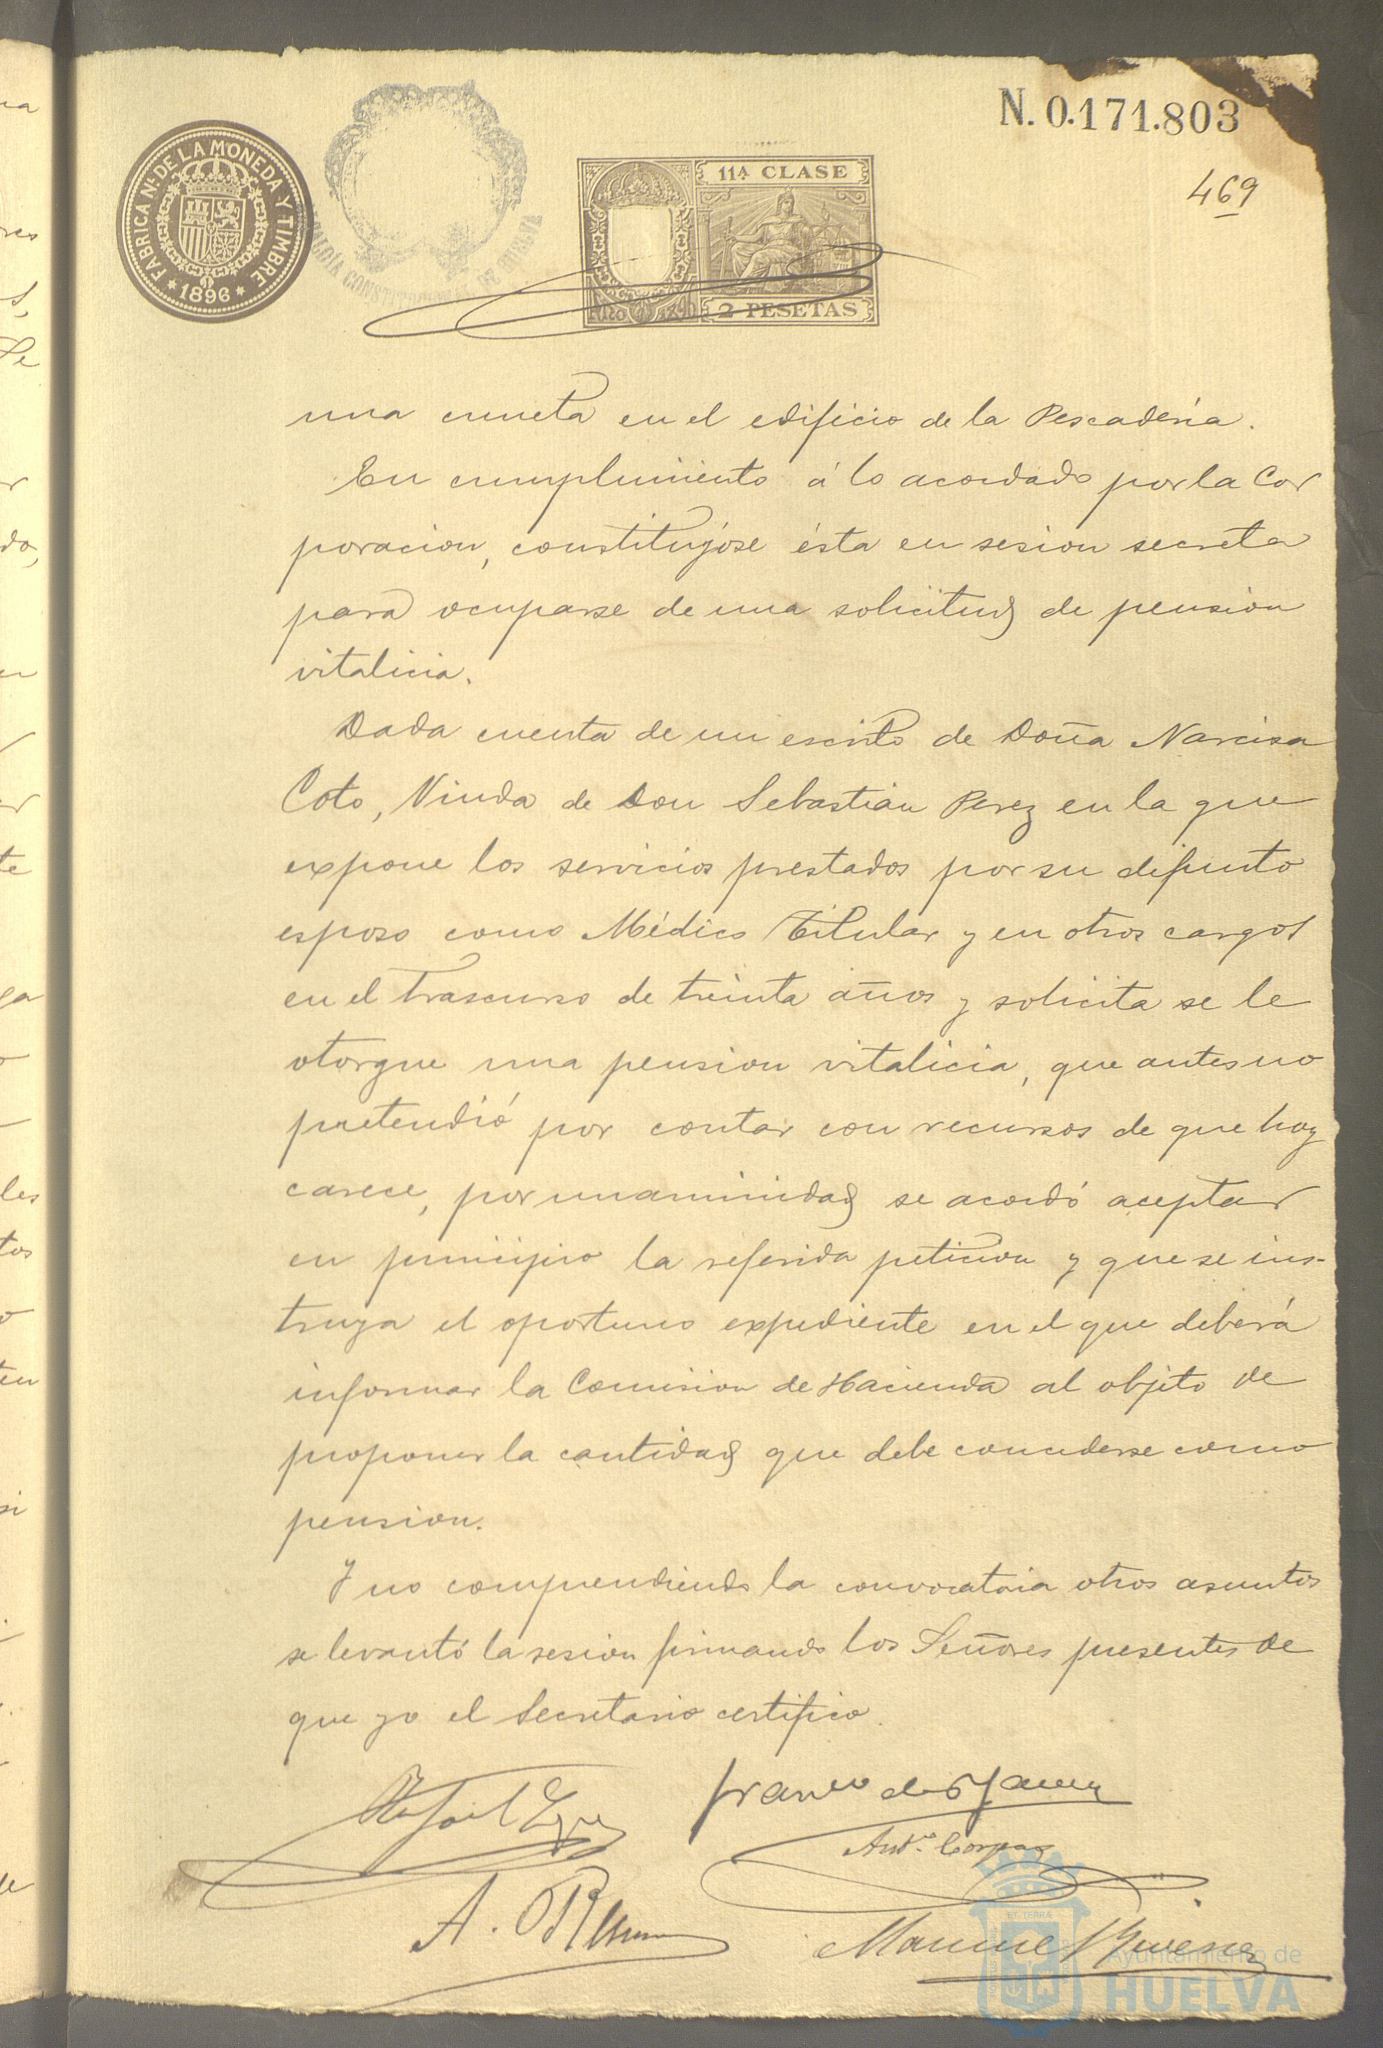 N. 0.171.803
469
FABRICA NL. DE LA MONEDA Y TIMBRE
* 1896 *
11ª CLASE
2 PESETAS
una cuneta en el edificio de la Pescadería.
En cumplimiento á lo acordado por la Cor
poracion, constituyóse ésta en sesion secreta
para ocuparse de una solicitud de pension
vitalicia.
Dada cuenta de un escrito de Doña Narcisa
Coto, Viuda de Don Sebastián Perez en la que
expone los servicios prestados por su difunto
esposo como Médico Titular y en otros cargos
en el trascurso de treinta años y solicita se le
otorgue una pension vitalicia, que antes no
pretendió por contar con recursos de que hoy
carece, por unanimidad se acordó aceptar
en principio la referida peticion y que se ins-
truya el oportuno expediente en el que deberá
informar la Comision de Hacienda al objeto de
proponer la cantidad que debe concederse como
pension.
Y no comprendiendo la convocatoria otros asuntos
se levantó la sesion firmando los Señores presentes de
que yo el Secretario certifico.
Rafael
Franco de
Antº. Corpas
A.
Manuel
Ayuntamiento de
HUELVA